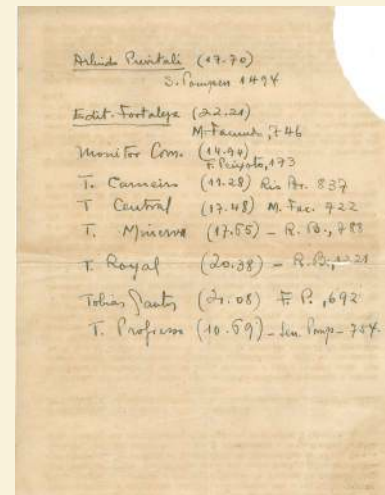 Arlindo Previtali (17.70)
S. Pompeu 1494
Edit. Fortaleza (22.21)
M. Facundo, 746
Monitor Com. (14.94)
F. Peixoto, 173
T. Carneiro (11.28) Rio Br. 837
T Central (17.48) M. Fac. 722
T. Minerva (17.55) – R. B., 788
T. Royal (20.38) – R. B., 1221
Tobias Santos (21.08) F. P., 692
T. Progresso (10.69) – Sen. Pomp – 754